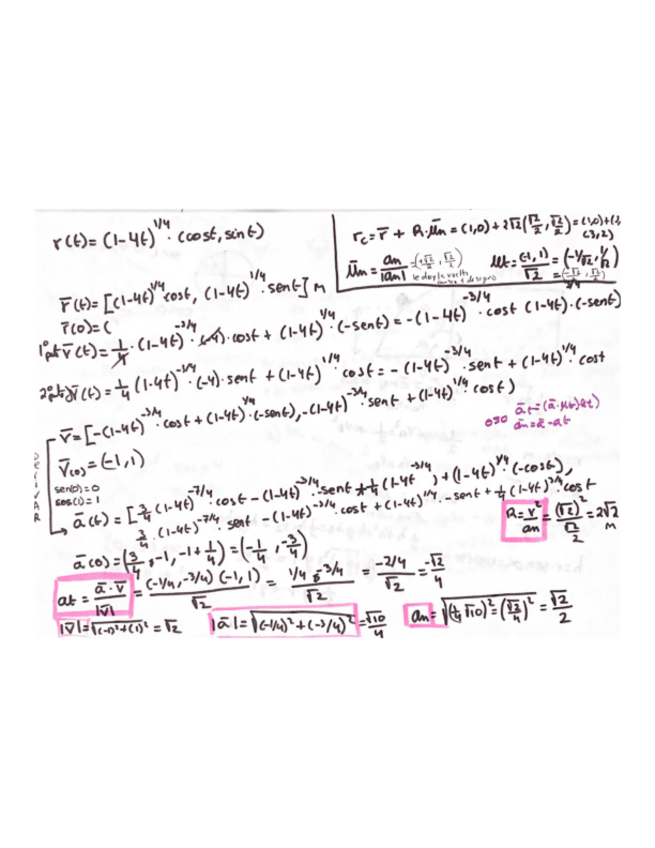 r(t) = (1-4t)^1/4 · (cost, sint)
r_c = r̄ + R·ūn = (1,0) + 2√2(√2/2, √2/2) = (1,0)+(2,
(3,2)
ūn = an/|an| = (+√2/2, √2/2)
le doy la vuelta
ut = (-1, 1)/√2 = (-1/√2, 1/√2)
= (-√2/2, √2/2)
r̄(t) = [(1-4t)^1/4 cost, (1-4t)^1/4 · sent] m
r̄(0) = (
1º pt v̄(t) = 1/4 · (1-4t)^-3/4 · (-4) · cost + (1-4t)^1/4 · (-sent) = -(1-4t)^-3/4 · cost (1-4t) · (-sent)
2º pt v̄(t) = 1/4 (1-4t)^-3/4 · (-4) · sent + (1-4t)^1/4 · cost = -(1-4t)^-3/4 · sent + (1-4t)^1/4 · cost
v̄ = [-(1-4t)^-3/4 · cost + (1-4t)^1/4 · (-sent), -(1-4t)^-3/4 sent + (1-4t)^1/4 cost)
ojo āt = (ā · μt) μt)
ān = ā - at
v̄(0) = (-1, 1)
sen(0) = 0
cos(1) = 1
DERIVAR
ā(t) = [3/4 (1-4t)^-7/4 · cost - (1-4t)^-3/4 · sent (1-4t)^-3/4) + (1-4t)^1/4 · (-cost),
3/4 · (1-4t)^-7/4 sent - (1-4t)^-3/4 · cost + (1-4t)^1/4 · -sent + 1/4 (1-4t)^-3/4 · cost
ā(0) = (3/4, -1, -1+1/4) = (-1/4, -3/4)
R = v²/an = (√2)²/(√2/2) = 2√2 m
at = ā·v̄/|v̄| = (-1/4, -3/4) (-1, 1)/√2 = 1/4 -3/4/√2 = -2/4/√2 = -√2/4
|v̄| = √(-1)²+(1)² = √2
|ā| = √(-1/4)² + (-3/4)² = √10/4
an = √(1/4 √10)² - (√2/4)² = √2/2